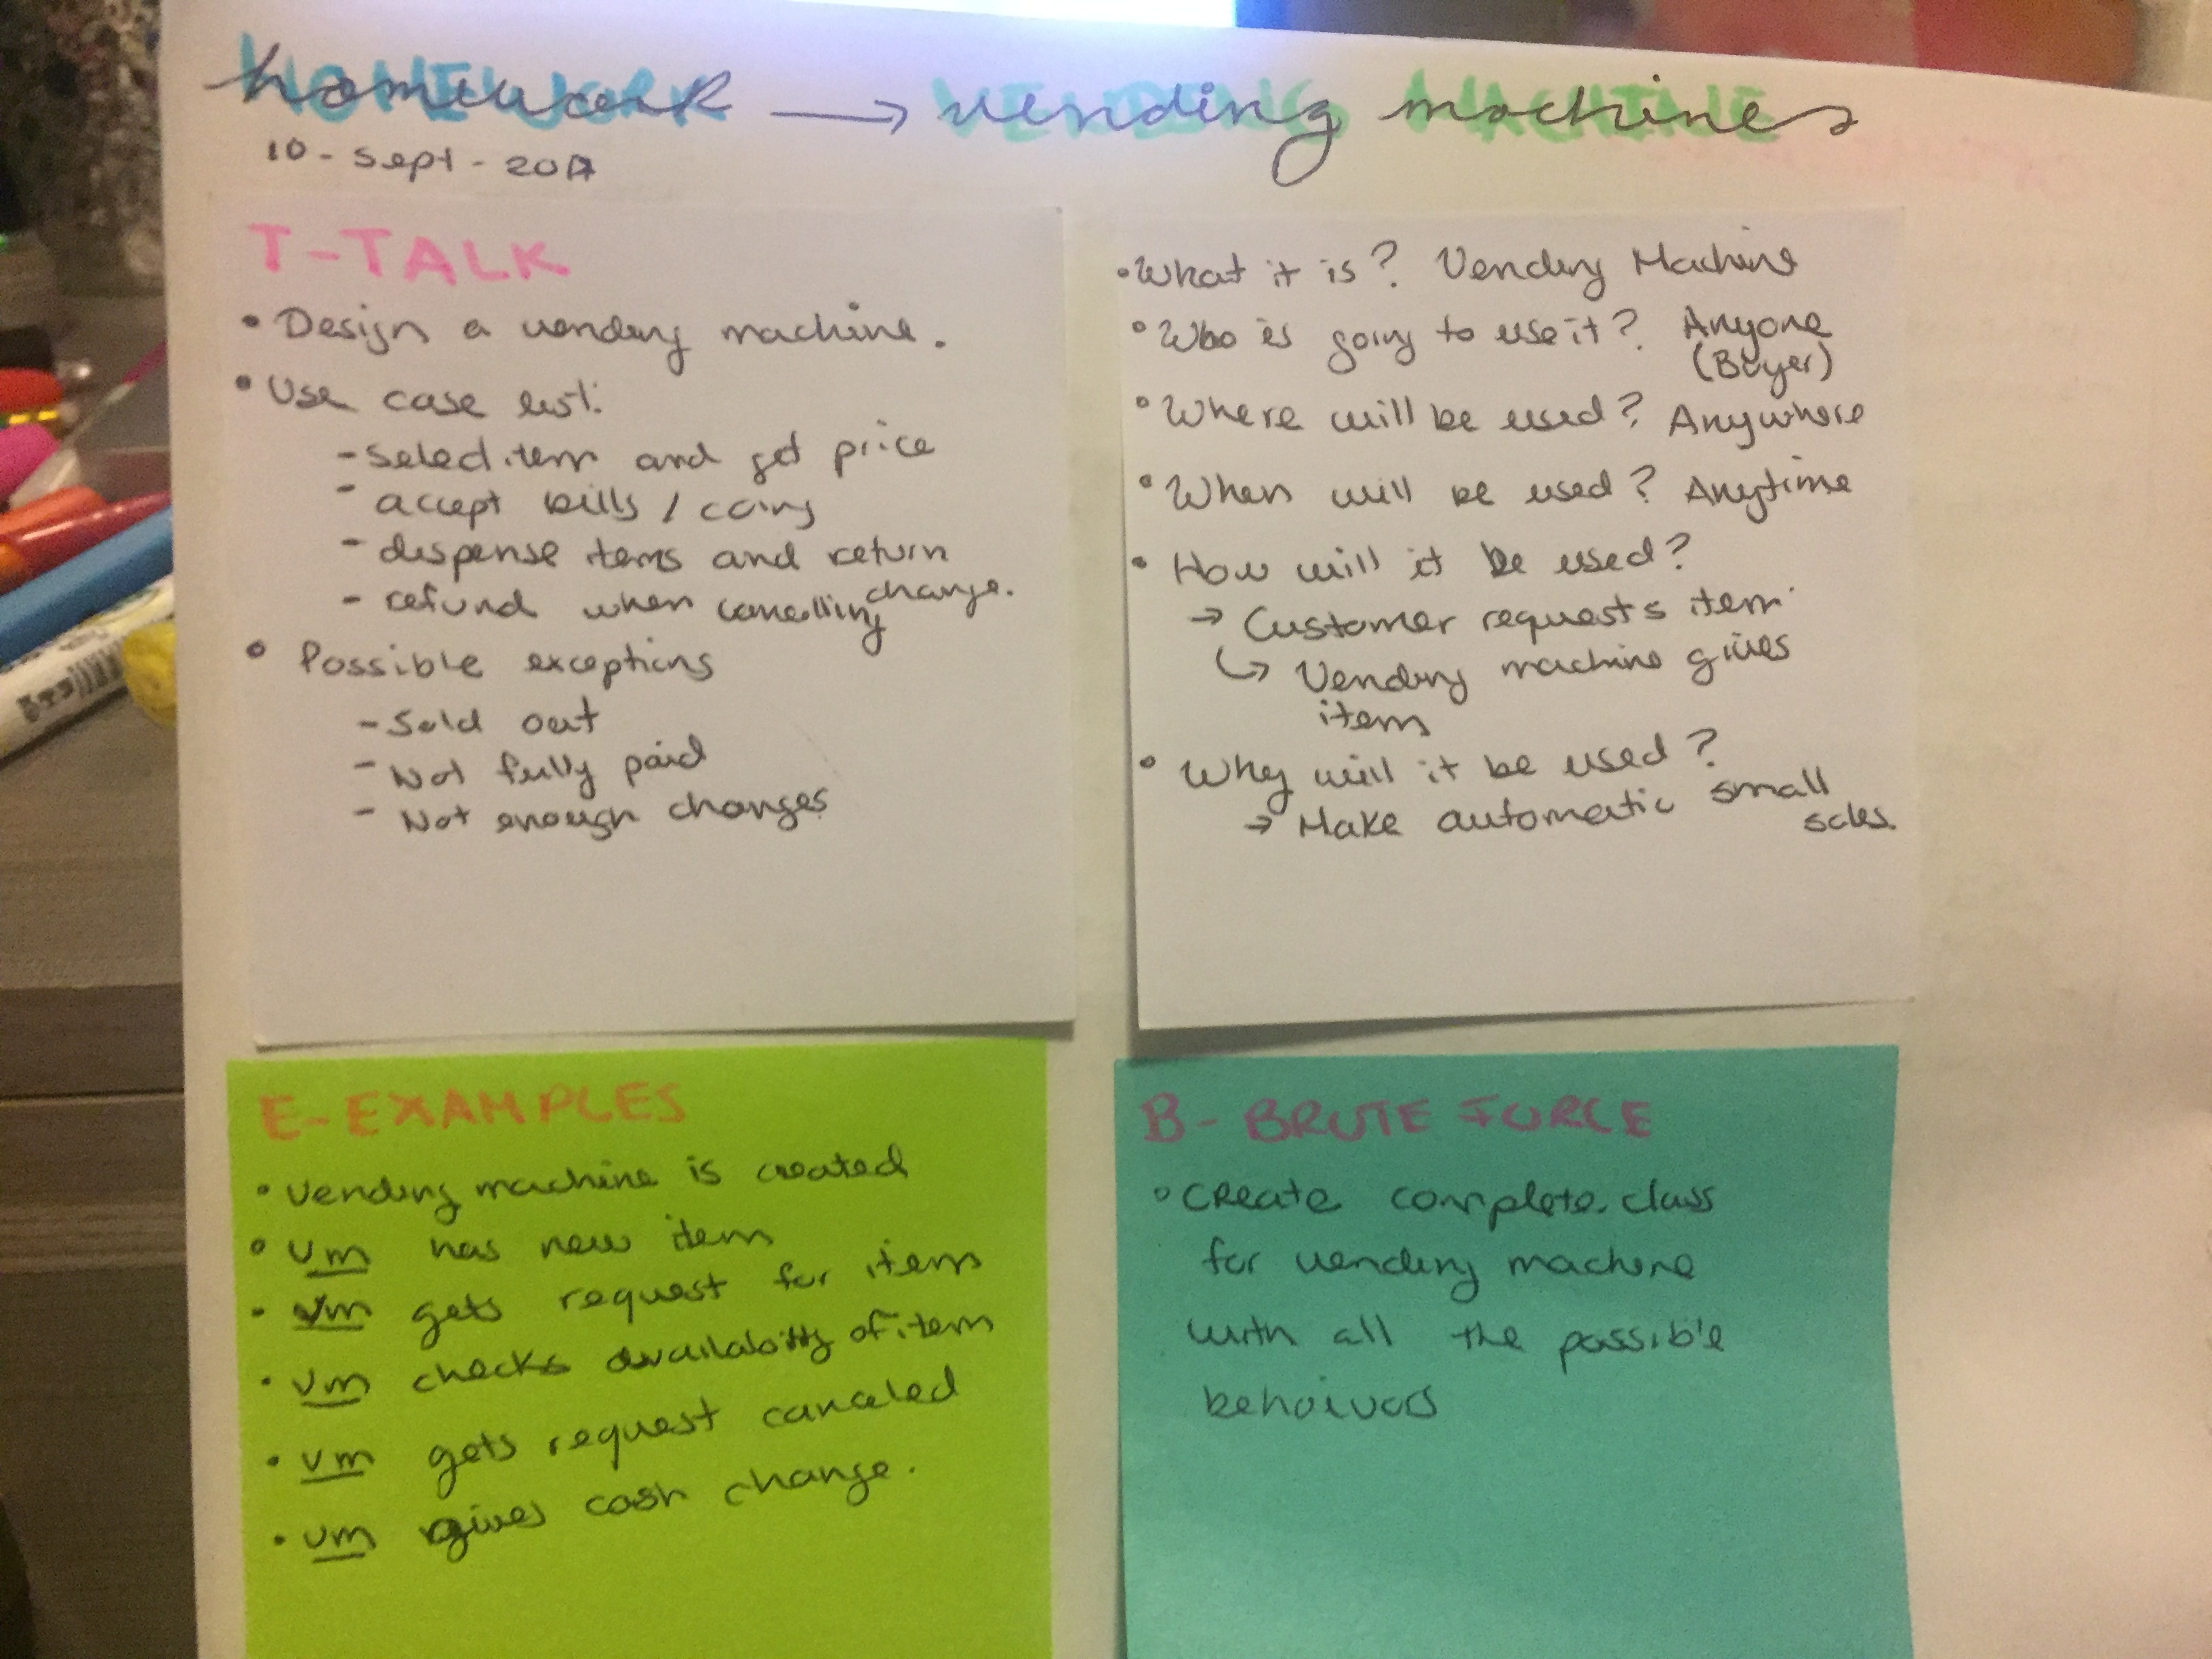 homework → vending machines
10 - sept - 2017
T-TALK
• Design a vending machine.
• Use case list:
- select item and get price
- accept bills / coins
- dispense items and return change.
- refund when cancelling
• Possible exceptions
- Sold out
- Not fully paid
- Not enough changes
• What it is? Vending Machine
• Who is going to use it? Anyone
(Buyer)
• Where will be used? Anywhere
• When will be used? Anytime
• How will it be used?
→ Customer requests item
↳ Vending machine gives
item
• Why will it be used?
→ Make automatic small
sales.
E-EXAMPLES
• Vending machine is created
• vm has new item
• vm gets request for item
• vm checks availability of item
• vm gets request canceled
• vm gives cash change.
B-BRUTE FORCE
• Create complete class
for vending machine
with all the possible